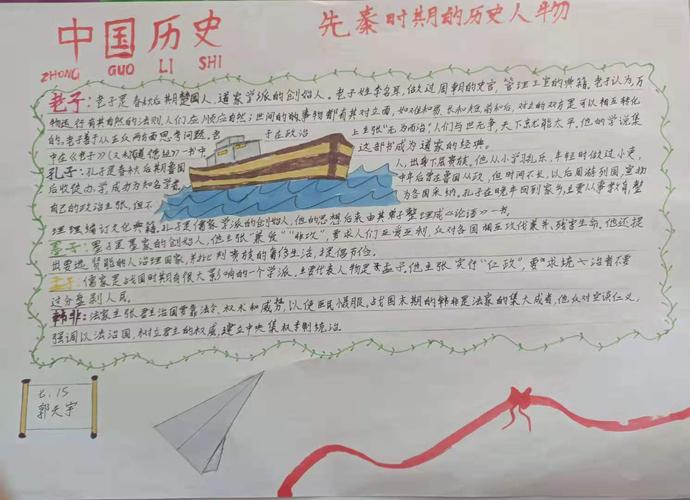 中国历史
ZHONG GUO LI SHI
先秦时期的历史人物
老子:老子是春秋后期楚国人,道家学派的创始人。老子姓李名耳,做过周朝的史官,管理王室的典籍。老子认为万
物运行有其自然的法则,人们应顺应自然;世间的事物都有其对立面,如难和易、长和短、前和后,对立的双方是可以相互转化
的。老子善于从正反两面思考问题。老子在政治上主张"无为而治",人们与世无争,天下就能太平。他的学说集
中在《老子》(又称《道德经》)一书中 这部书成为道家的经典。
孔子:孔子是春秋后期鲁国人,出身下层贵族,他从小学习礼乐,年轻时做过小吏,
后收徒办学,成为知名学者 中年后曾在鲁国从政,但时间不长,以后周游列国,宣扬
自己的政治主张,但不为各国采纳。孔子在晚年回到家乡,主要从事教育,整
理编订文化典籍。孔子是儒家学派的创始人,他的思想后来由其弟子整理成《论语》一书。
墨子:墨子是墨家的创始人,他主张"兼爱""非攻",要求人们互爱互利,反对各国相互攻伐兼并、残害生命。他还提
出要选贤能的人治理国家,并批判贵族的奢侈生活,提倡节俭。
孟子:儒家是战国时期有很大影响的一个学派,主要代表人物是孟子,他主张实行"仁政",要求统治者不要
过分剥削人民。
韩非:法家主张君主治国要靠法令、权术和威势,以使臣民慑服。战国末期的韩非是法家的集大成者,他反对空谈仁义,
强调以法治国,树立君主的权威,建立中央集权专制统治。
七.15
郭天宇